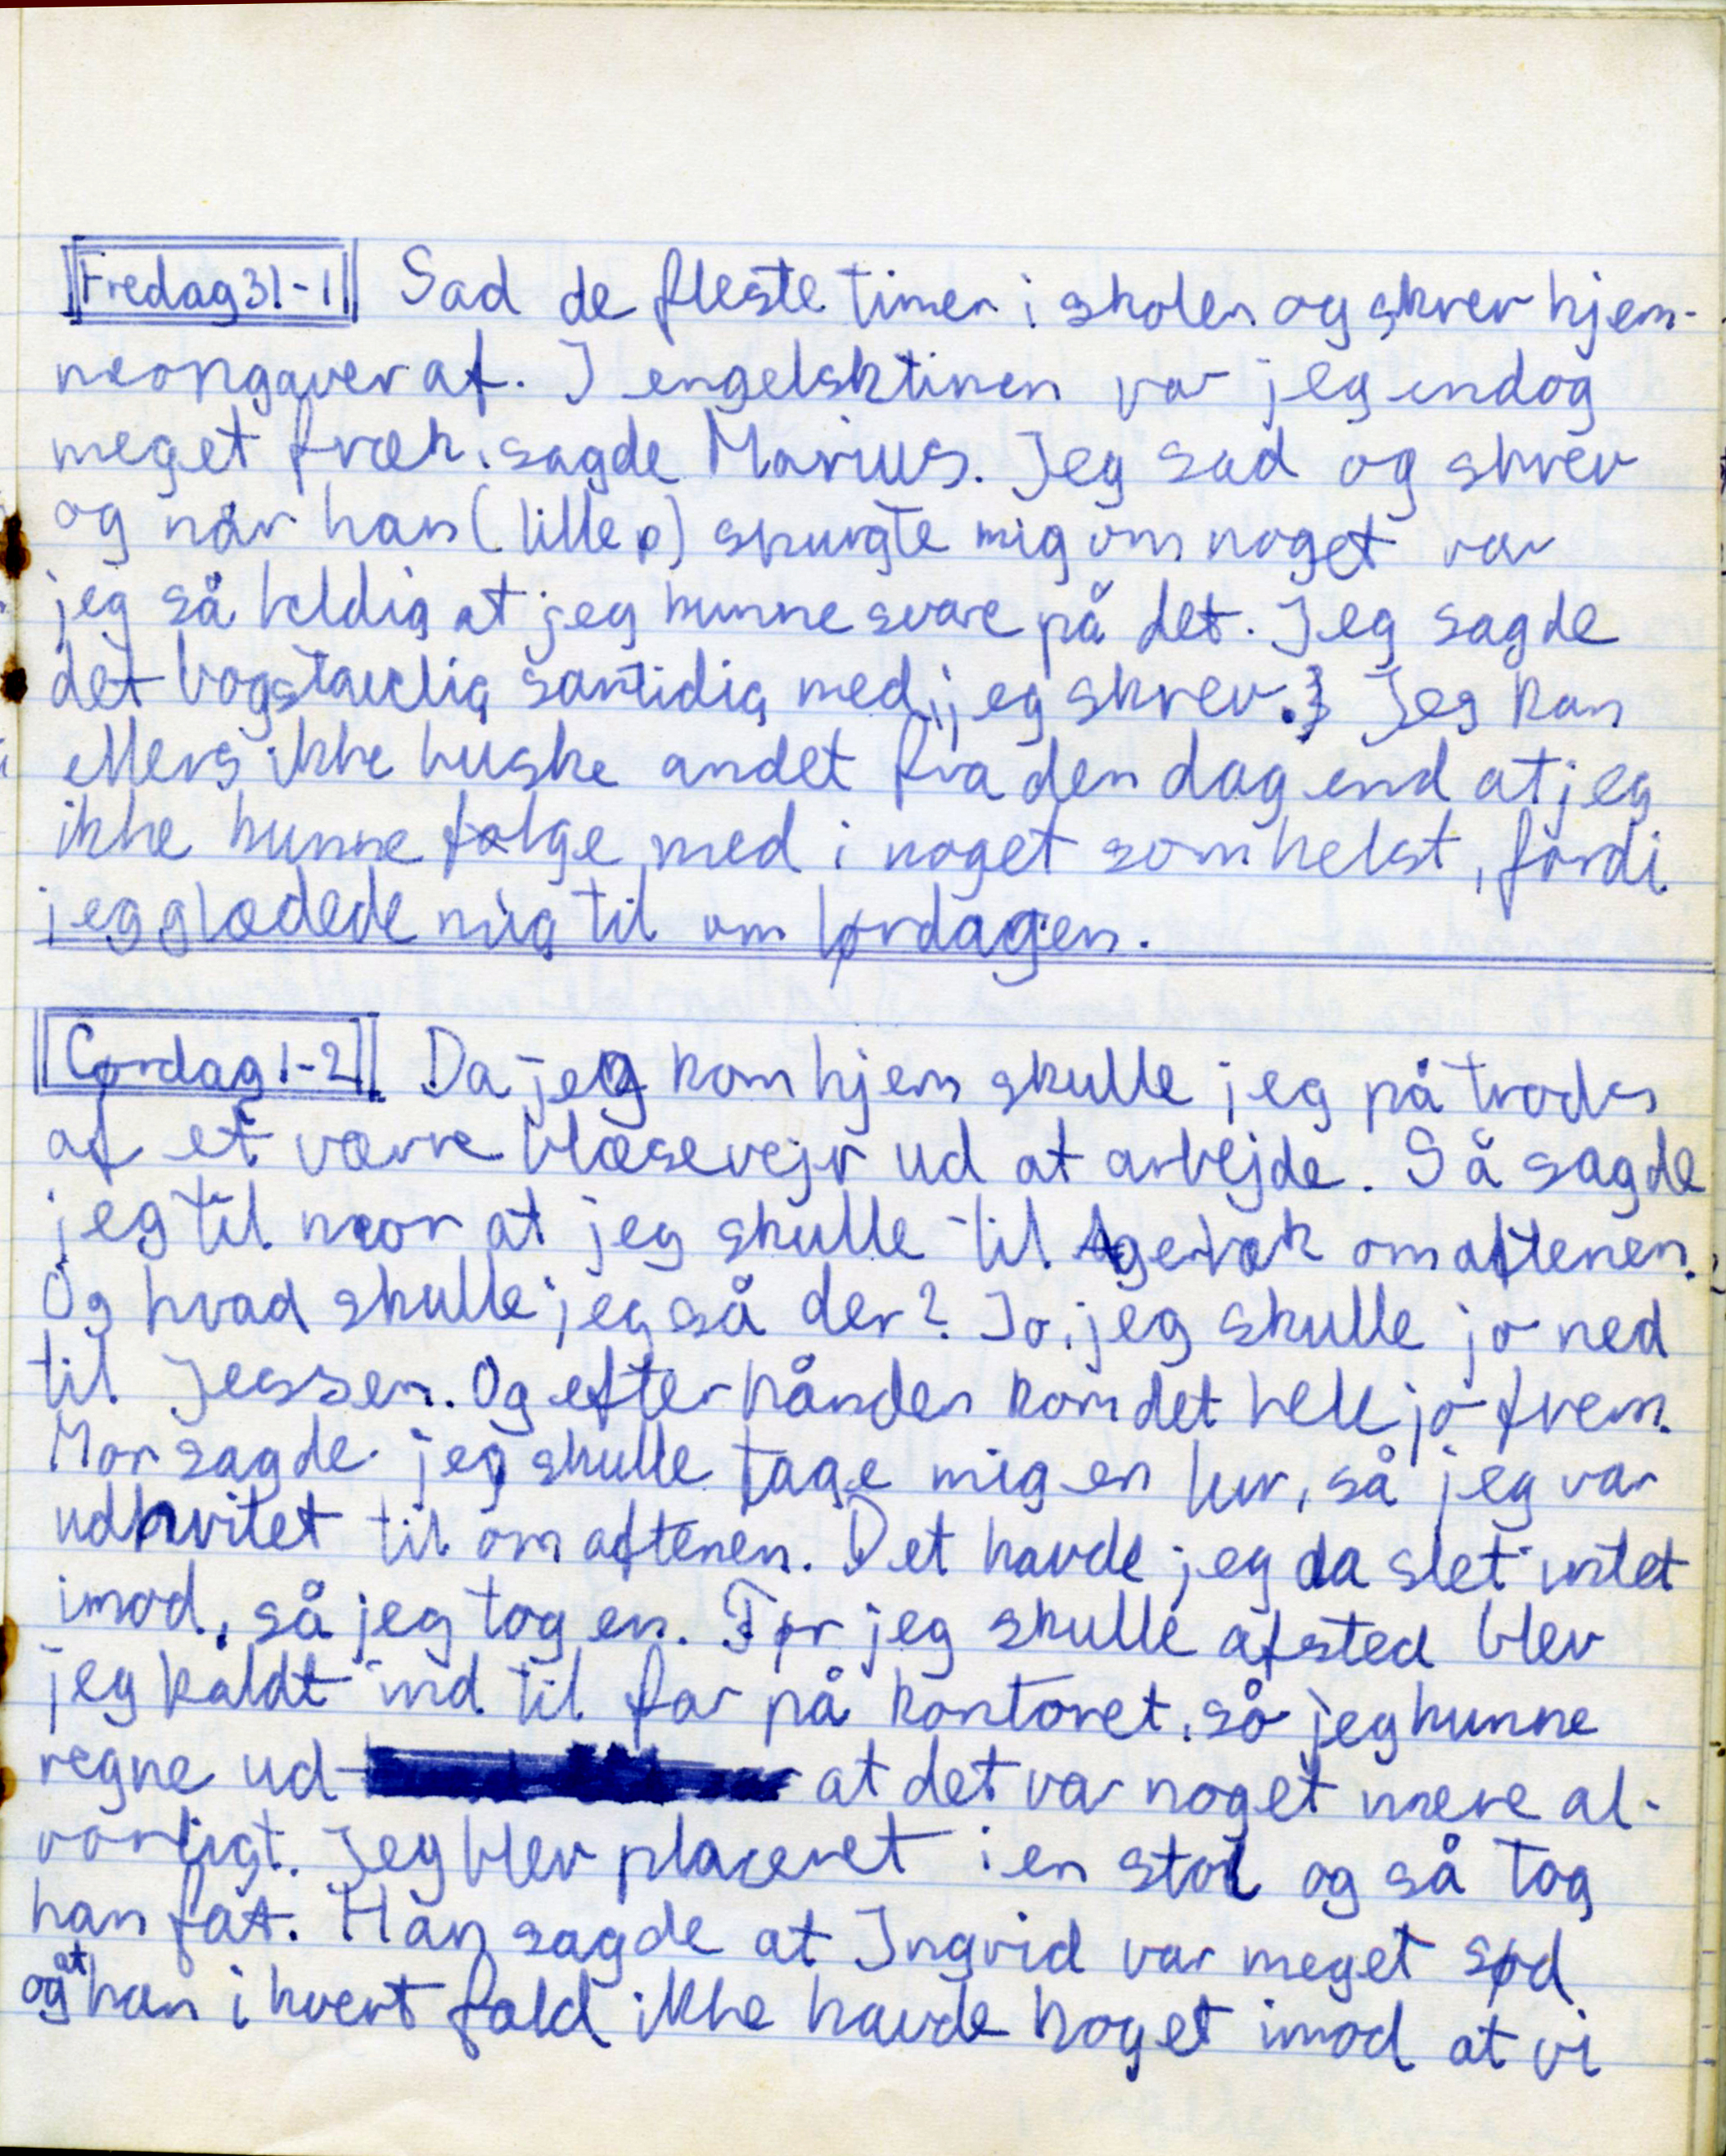 Fredag 31-1 Sad de fleste timer i skolen og skrev hjem-
meopgaver af. I engelsktimen var jeg endog
meget fræk, sagde Marius. Jeg sad og skrev
og når han (lille p) spurgte mig om noget var
jeg så heldig at jeg kunne svare på det. Jeg sagde
det bogstavelig samtidig med, jeg skrev. Jeg kan
ellers ikke huske andet fra den dag end at jeg
ikke kunne følge med i noget somhelst, fordi
jeg glædede mig til om lørdagen.
Lørdag 1-2 Da jeg kom hjem skulle jeg på trods
af et værre blæsevejr ud at arbejde. Så sagde
jeg til mor at jeg skulle til Agerbæk om aftenen.
Og hvad skulle jeg så der? Jo, jeg skulle jo ned
til Jessen. Og efterhånden kom det hele jo frem.
Mor sagde jeg skulle tage mig en lur, så jeg var
udhvilet til om aftenen. Det havde jeg da slet intet
imod, så jeg tog en. Før jeg skulle afsted blev
jeg kaldt ind til far på kontoret, så jeg kunne
regne ud at det var noget mere al-
vorligt. Jeg blev placeret i en stol og så tog
han fat. Han sagde at Ingrid var meget sød
og at han i hvert fald ikke havde noget imod at vi